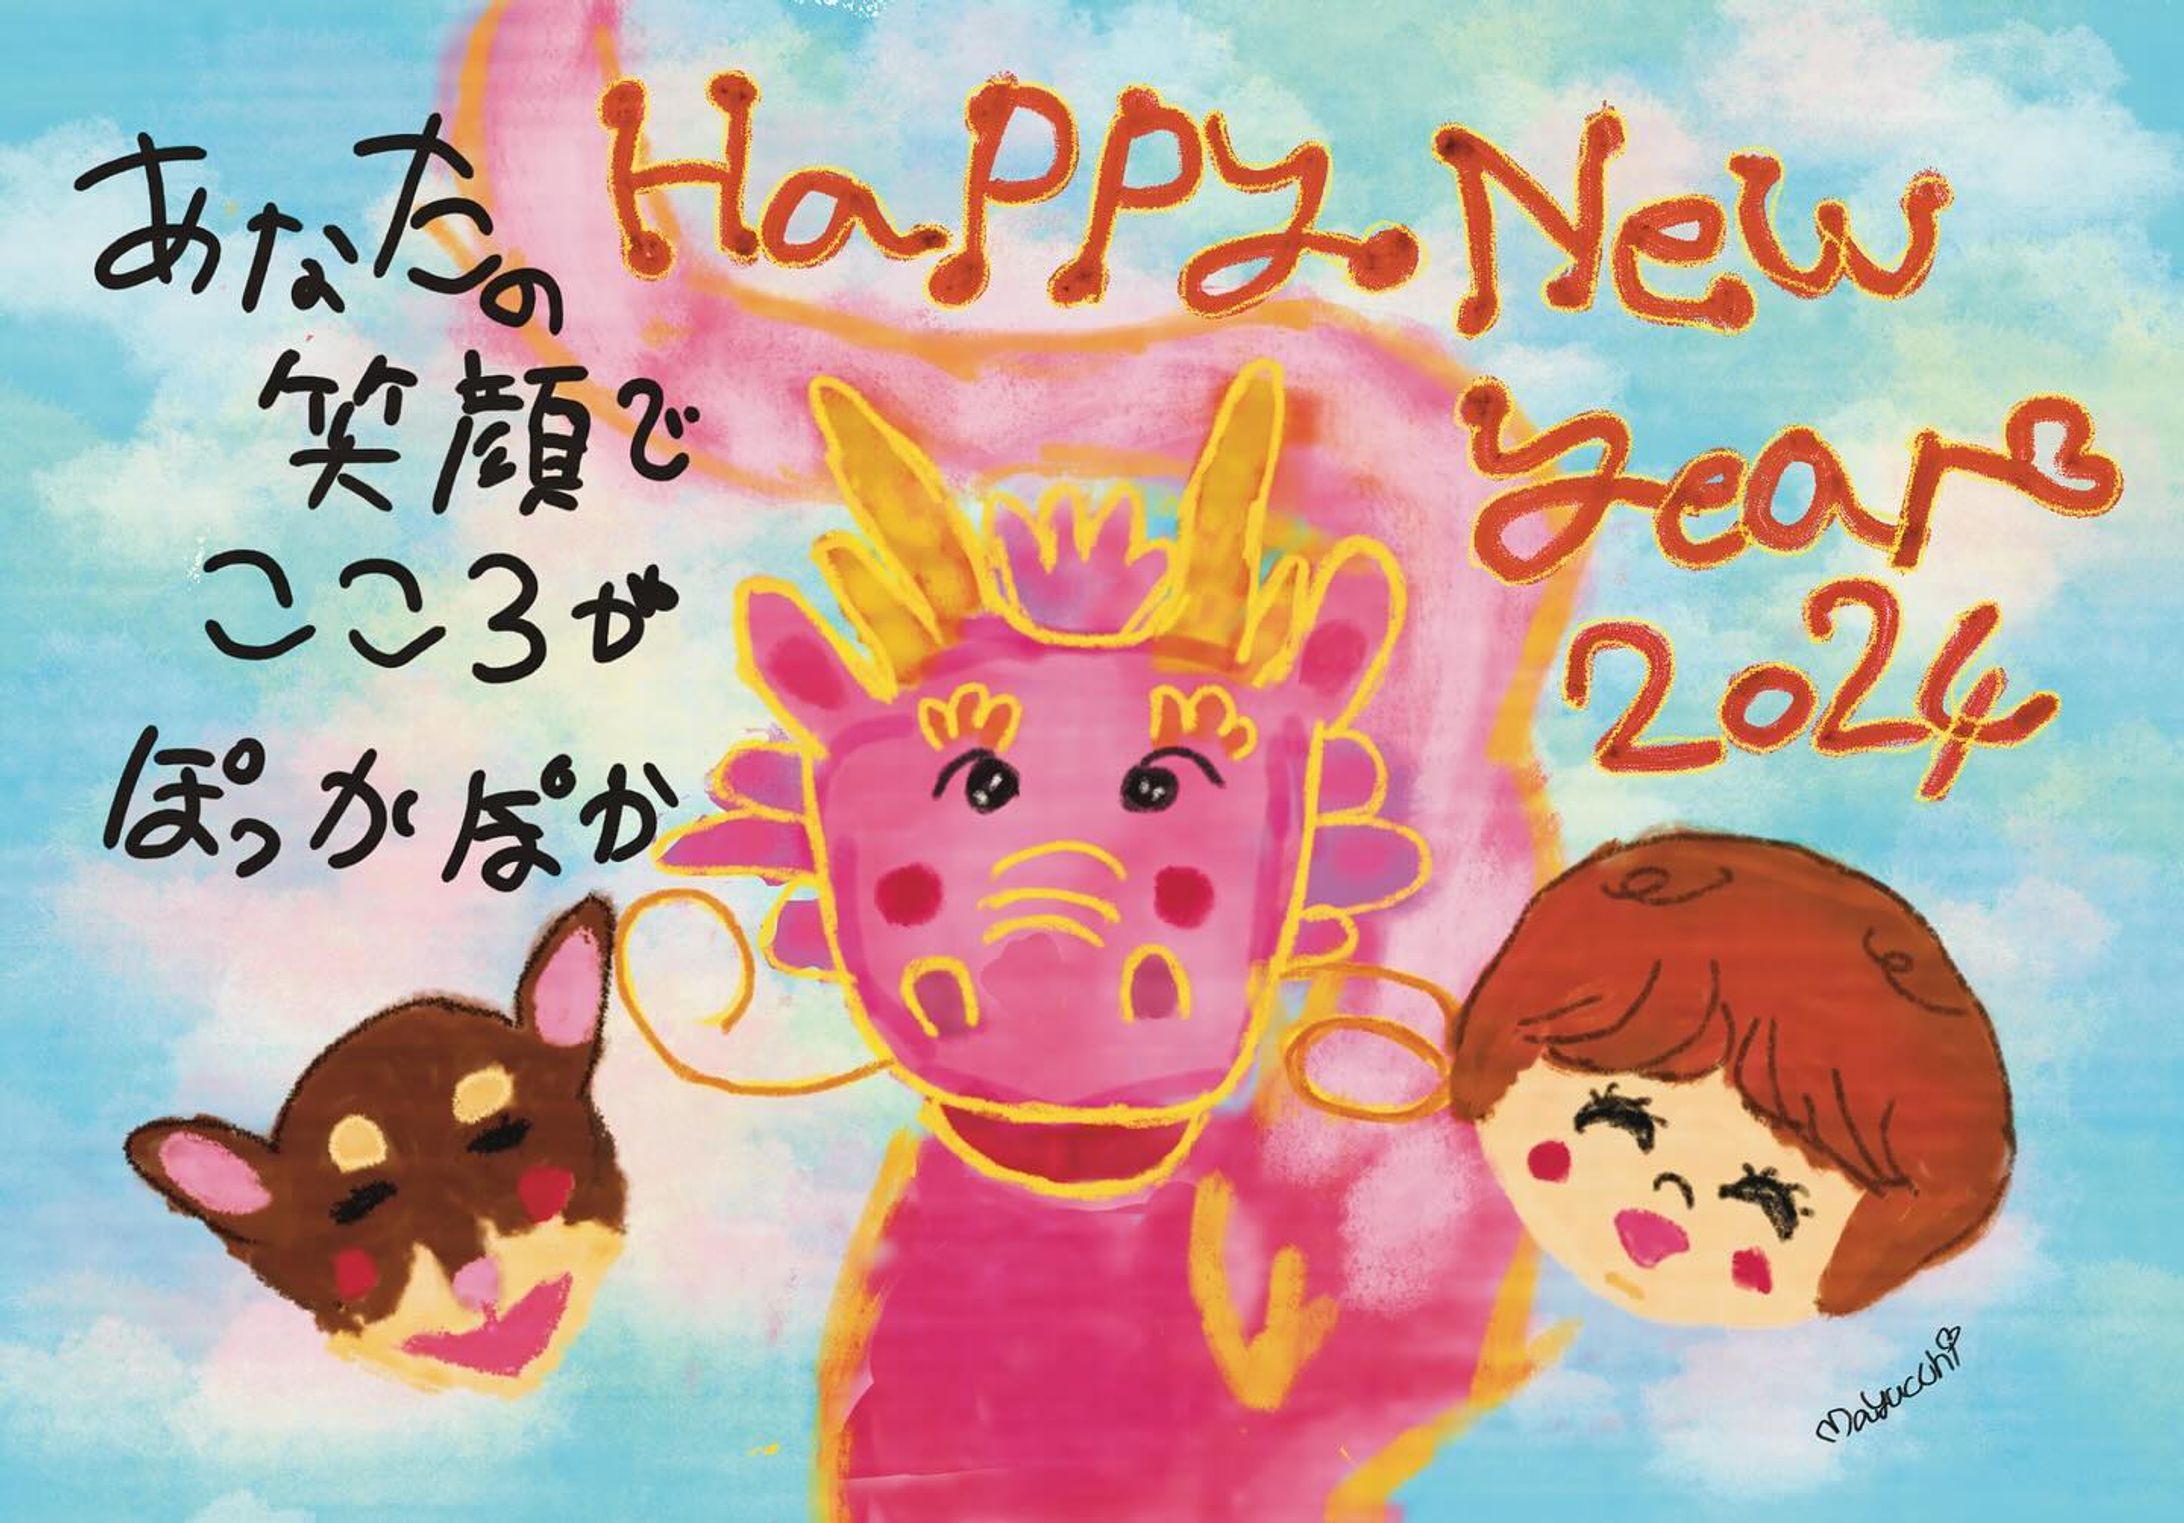 あなたの
笑顔で
こころが
ぽっかぽか
Happy New
year
2024
Mayucchi